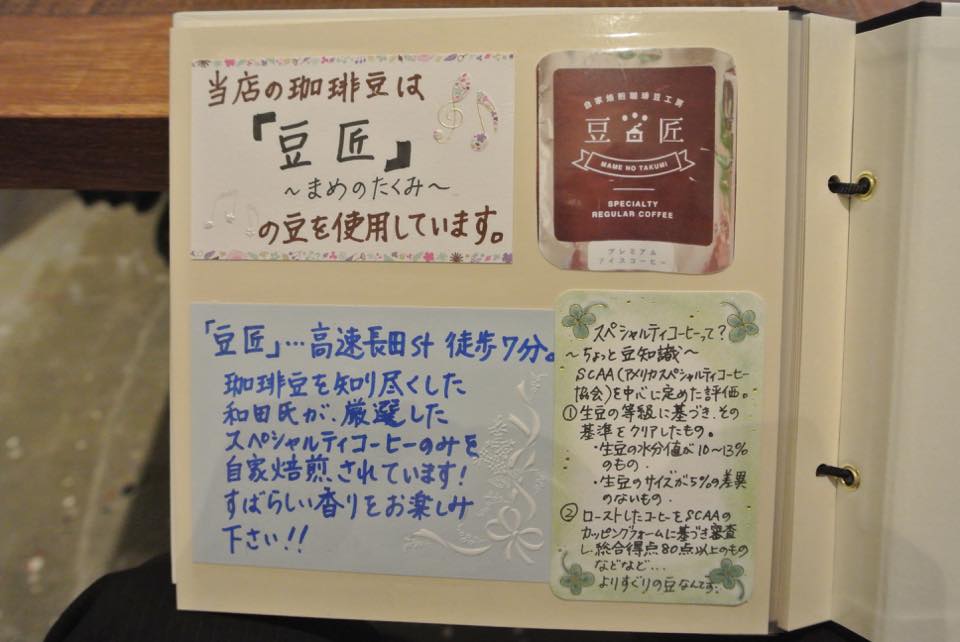 当店の珈琲豆は
「豆匠」
～まめのたくみ～
の豆を使用しています。
自家焙煎珈琲豆工房
豆匠
MAME NO TAKUMI
SPECIALTY
REGULAR COFFEE
プレミアム
アイスコーヒー
「豆匠」…高速長田st 徒歩7分。
珈琲豆を知り尽くした
和田氏が、厳選した
スペシャルティコーヒーのみを
自家焙煎されています!
すばらしい香りをお楽しみ
下さい!!
スペシャルティコーヒーって?
～ちょっと豆知識～
SCAA(アメリカスペシャルティコーヒー
協会)を中心に定めた評価。
①生豆の等級に基づき、その
基準をクリアしたもの。
・生豆の水分値が10～13%
のもの.
・生豆のサイズが5%の差異
のないもの.
②ローストしたコーヒーをSCAAの
カッピングフォームに基づき審査
し、総合得点80点以上のもの
などなど…
よりすぐりの豆なんです。